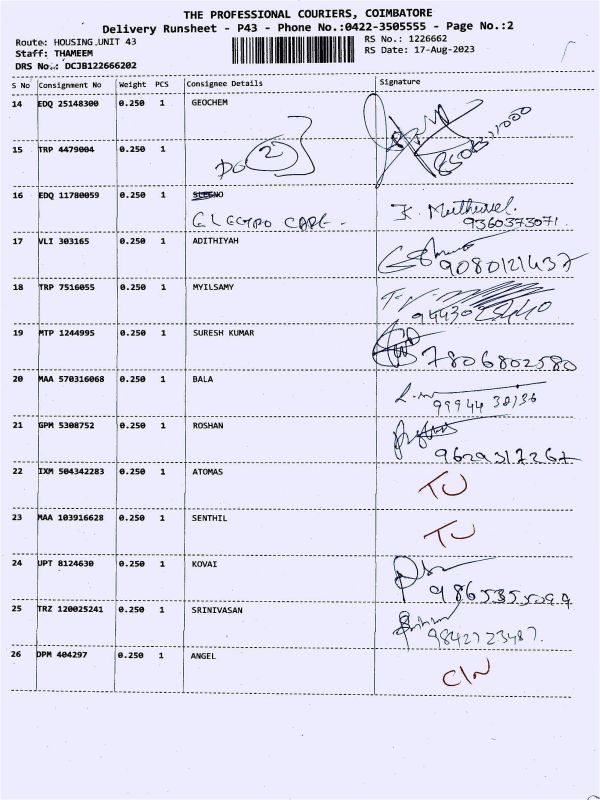 THE PROFESSIONAL COURIERS, COIMBATORE
Delivery Runsheet - P43 - Phone No.:0422-3505555 - Page No.:2
Route: HOUSING UNIT 43
RS No.: 1226662
Staff: THAMEEM
RS Date: 17-Aug-2023
DRS No.: DCJB122666202
S No Consignment No Weight PCS Consignee Details Signature
14 EDQ 25148300 0.250 1 GEOCHEM
15 TRP 4479004 0.250 1
DO 2
16 EDQ 11780059 0.250 1
ELECTRO CARE - K. Muthuvel.
9360373071
17 VLI 303165 0.250 1 ADITHIYAH
9080121437
18 TRP 7516055 0.250 1 MYILSAMY
19 MTP 1244995 0.250 1 SURESH KUMAR
7806802580
20 MAA 570316068 0.250 1 BALA
99944 38136
21 GPM 5308752 0.250 1 ROSHAN
9629317267
22 IXM 504342283 0.250 1 ATOMAS TU
23 MAA 103916628 0.250 1 SENTHIL TU
24 UPT 8124630 0.250 1 KOVAI
25 TRZ 120025241 0.250 1 SRINIVASAN
9842723487.
26 DPM 404297 0.250 1 ANGEL CIN